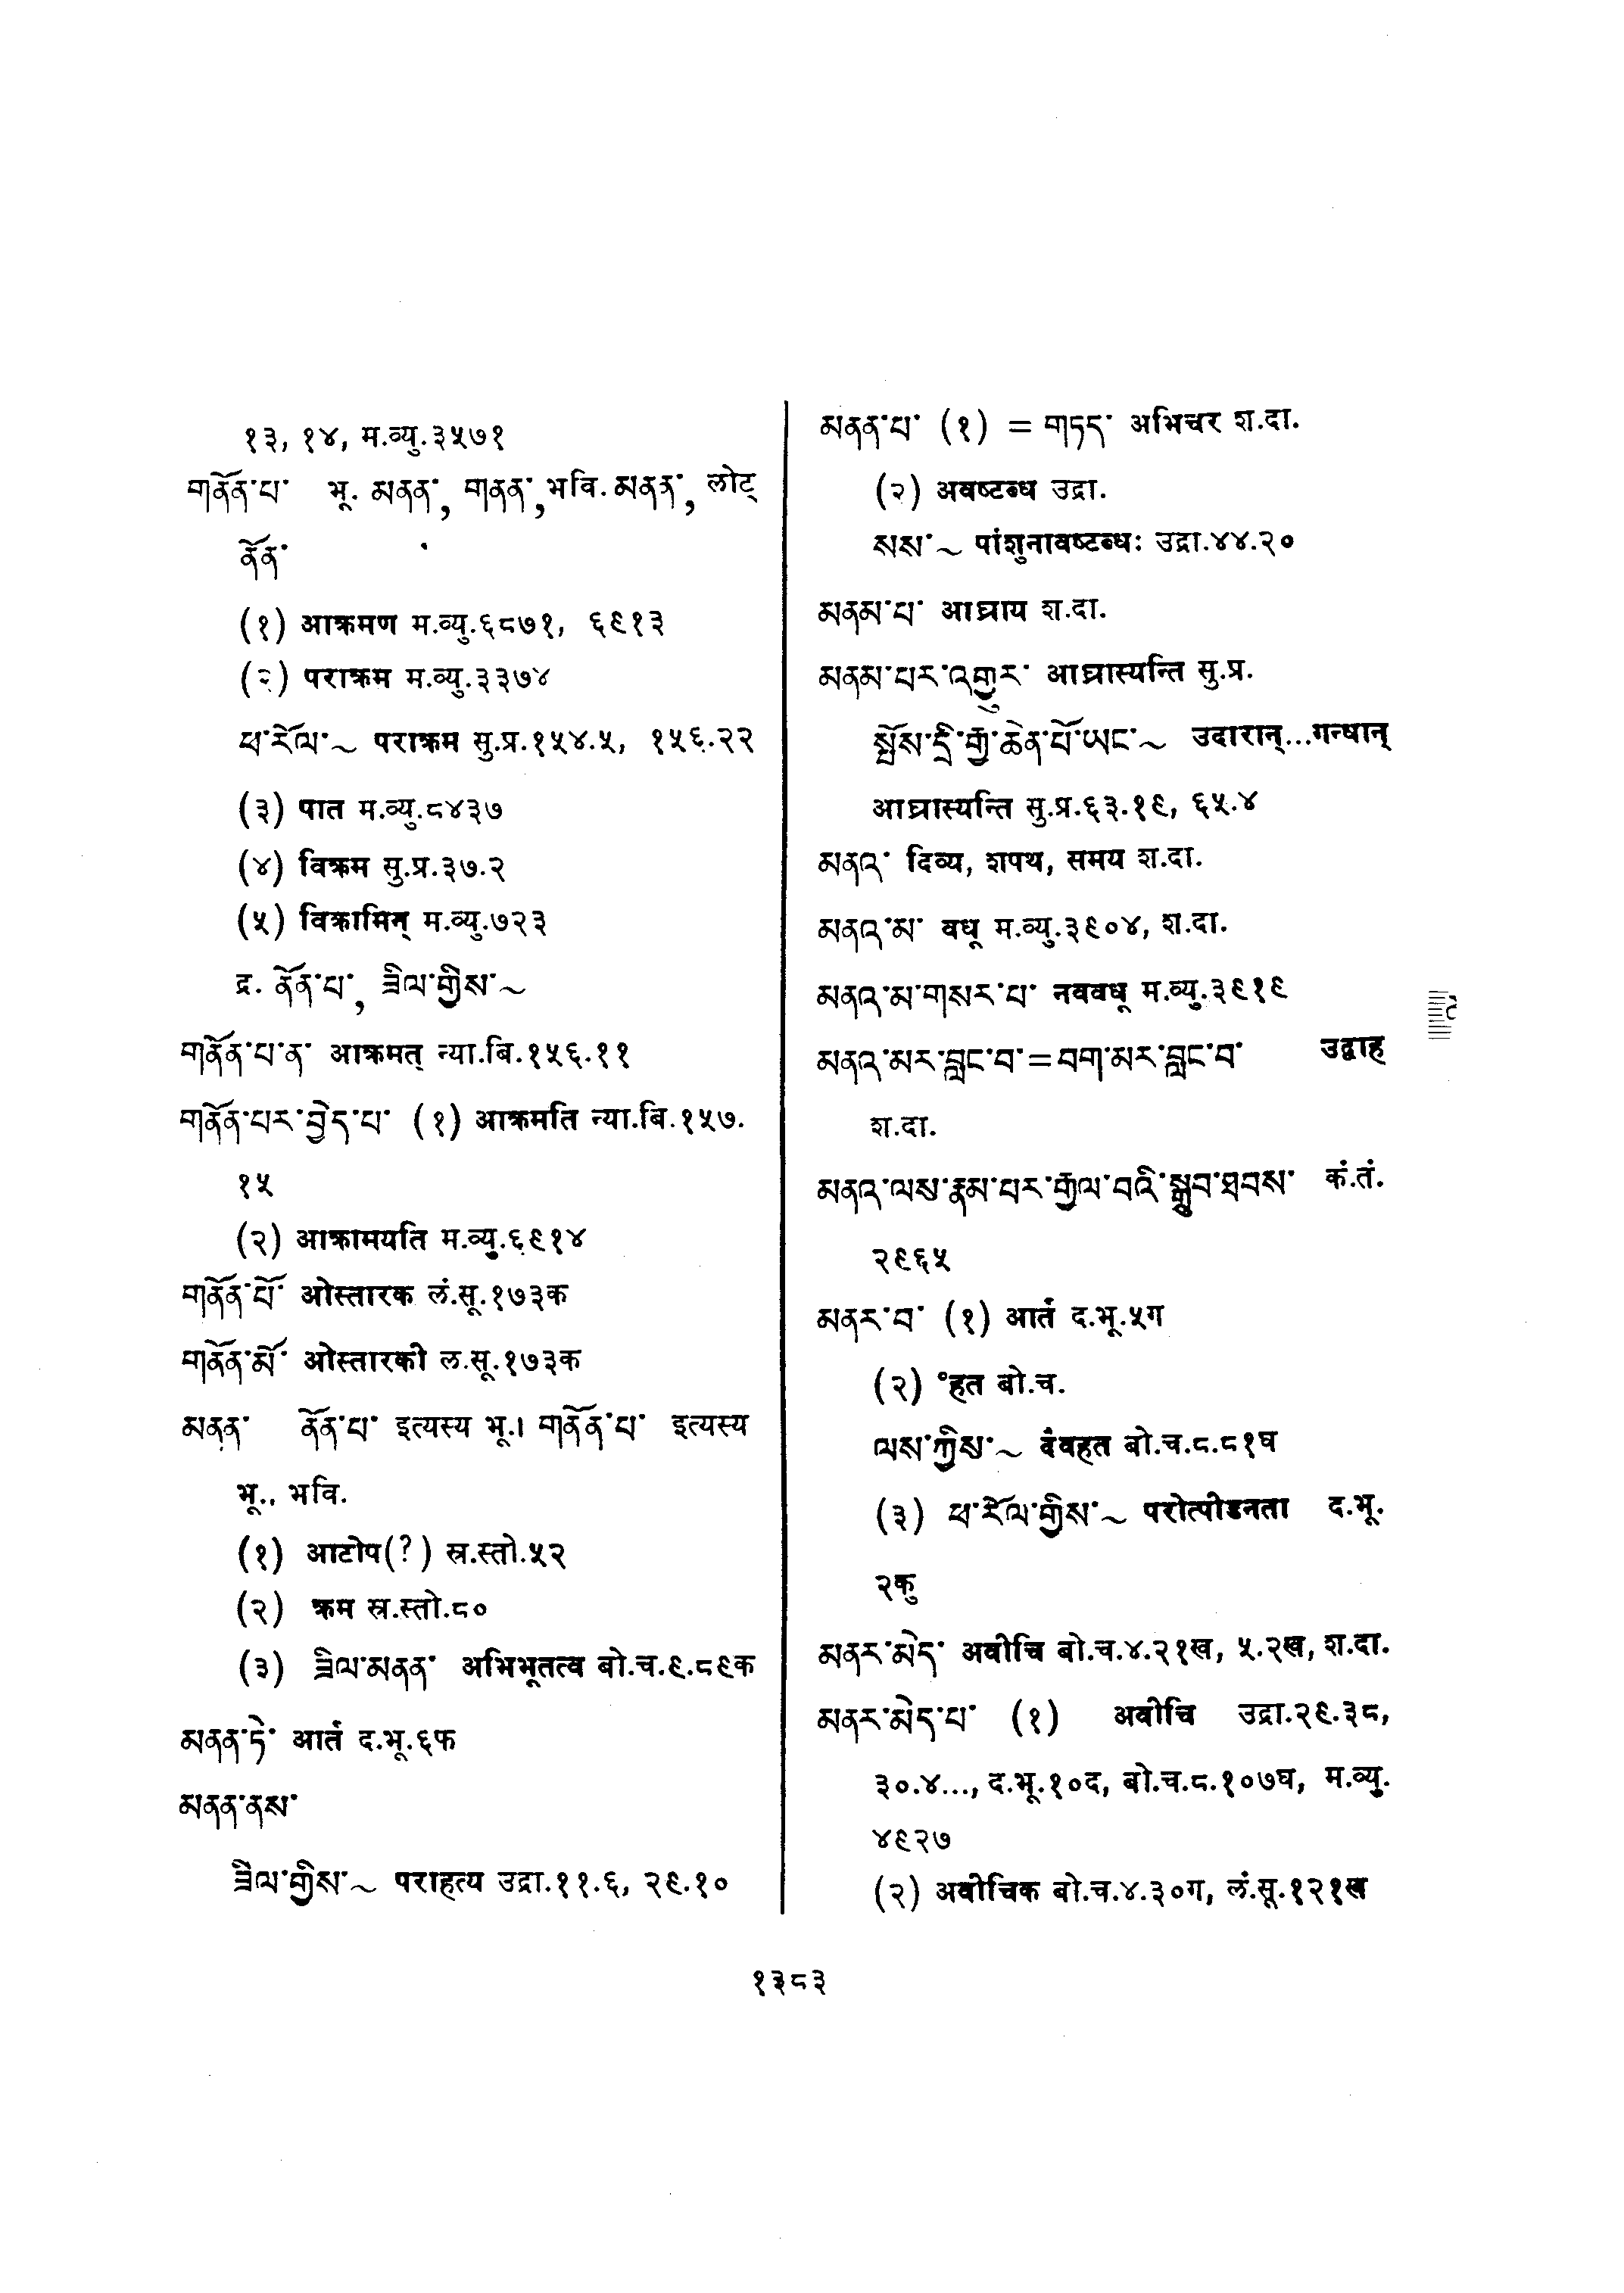 १३, १४, म.व्यु.३५७१
གནོན་པ་ भू. མནན་, གནན་, भवि. མནན་, लोट्
ནོན་
(१) आक्रमण म.व्यु.६८७१, ६९१३
(२) पराक्रम म.व्यु.३३७४
ཕ་རོལ་~ पराक्रम सु.प्र.१५४.५, १५६.२२
(३) पात म.व्यु.८४३७
(४) विक्रम सु.प्र.३७.२
(५) विक्रामिन् म.व्यु.७२३
द्र. ནོན་པ་, ཟིལ་གྱིས་~
གནོན་པ་ན་ आक्रमत् न्या.बि.१५६.११
གནོན་པར་བྱེད་པ་ (१) आक्रमति न्या.बि.१५७.
१५
(२) आक्रामयति म.व्यु.६९१४
གནོན་པོ་ ओस्तारक लं.सू.१७३क
གནོན་མོ་ ओस्तारकी ल.सू.१७३क
མནན་ ནོན་པ་ इत्यस्य भू.। གནོན་པ་ इत्यस्य
भू., भवि.
(१) आटोप(?) स्र.स्तो.५२
(२) क्रम स्र.स्तो.८०
(३) ཟིལ་མནན་ अभिभूतत्व बो.च.९.८९क
མནན་ཏེ་ आर्त द.भू.६फ
མནན་ནས་
ཟིལ་གྱིས་~ पराहत्य उद्रा.११.६, २९.१०
མནན་པ་ (१) = གཏད་ अभिचर श.दा.
(२) अवष्टब्ध उद्रा.
སས་~ पांशुनावष्टब्धः उद्रा.४४.२०
མནམ་པ་ आघ्राय श.दा.
མནམ་པར་འགྱུར་ आघ्रास्यन्ति सु.प्र.
སྤོས་དྲི་རྒྱ་ཆེན་པོ་ཡང་~ उदारान्...गन्धान्
आघ्रास्यन्ति सु.प्र.६३.१९, ६५.४
མནའ་ दिव्य, शपथ, समय श.दा.
མནའ་མ་ वधू म.व्यु.३९०४, श.दा.
མནའ་མ་གསར་པ་ नववधू म.व्यु.३९१९
མནའ་མར་བླང་བ་=བག་མར་བླང་བ་ उद्वाह
श.दा.
མནའ་ལས་རྣམ་པར་རྒྱལ་བའི་སྒྲུབ་ཐབས་ कं.तं.
२९६५
མནར་བ་ (१) आर्त द.भू.५ग
(२) °हत बो.च.
ལས་ཀྱིས་~ दैवहत बो.च.८.८१घ
(३) ཕ་རོལ་གྱིས་~ परोत्पीडनता द.भू.
२कु
མནར་མེད་ अवीचि बो.च.४.२१ख, ५.२ख, श.दा.
མནར་མེད་པ་ (१) अवीचि उद्रा.२९.३८,
३०.४..., द.भू.१०द, बो.च.८.१०७घ, म.व्यु.
४९२७
(२) अवीचिक बो.च.४.३०ग, लं.सू.१२१ख
१३८३